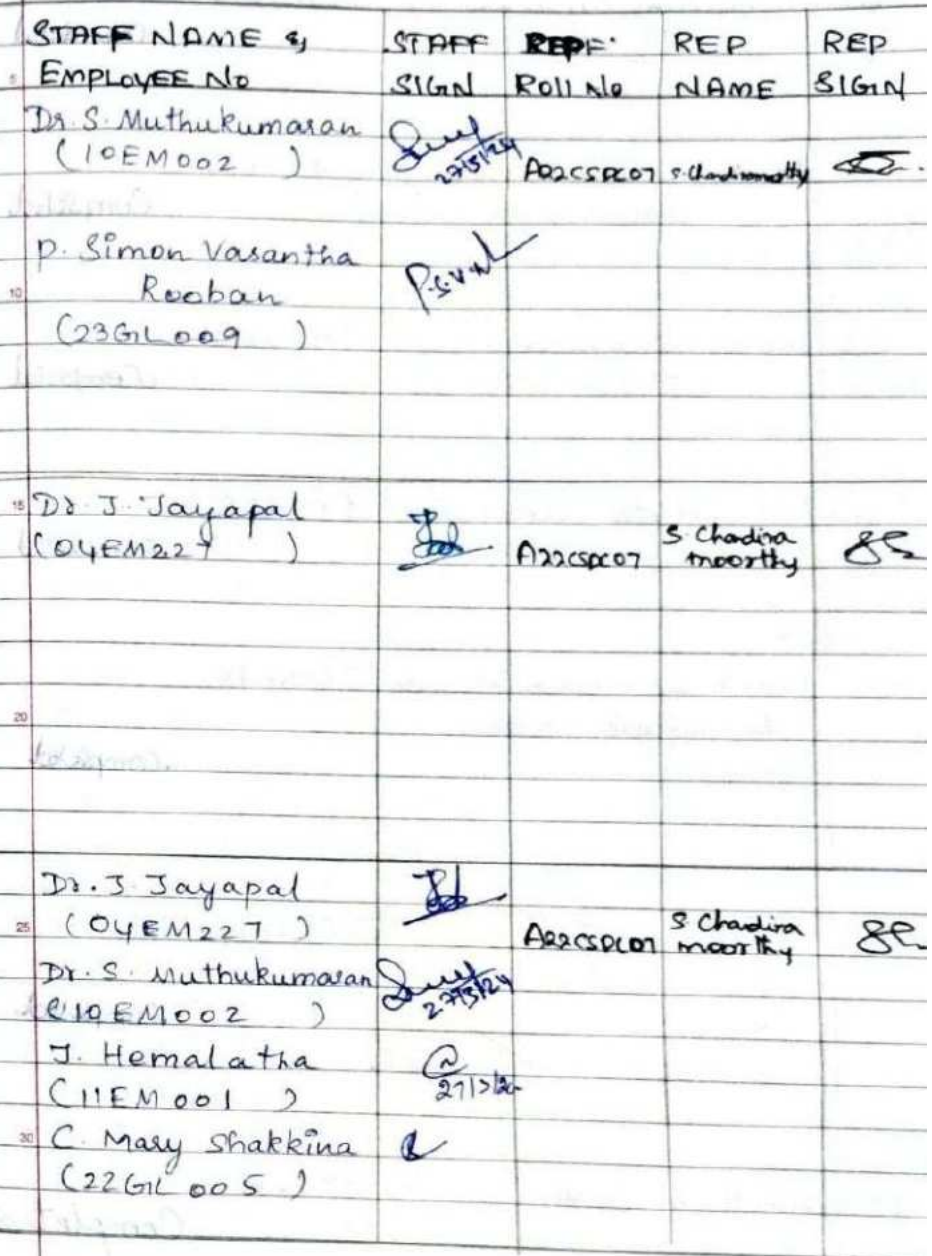 STAFF NAME & STAFF REP REP REP
EMPLOYEE No SIGN Roll No NAME SIGN
Dr. S. Muthukumaran
(10EM002 ) 27/3/24 A22CSPC07 S. Chandiramoorthy
P. Simon Vasantha
Rooban P.S.V.
10
(23GIL009 )
15 Dr. J. Jayapal
(04EM227 ) A22CSPC07 S. Chandira
moorthy
20
Dr. J. Jayapal
25 (04EM227 ) A22CSPC07 S Chandira
moorthy
Dr. S. Muthukumaran
(10EM002 ) 27/3/24
J. Hemalatha
(11EM001 ) 27/3/24
30 C. Mary Shakkina
(22GIL005 )